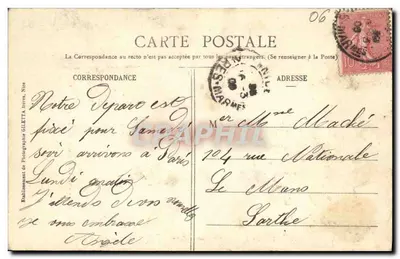 06
CARTE POSTALE
La Correspondance au recto n'est pas acceptée par tous les pays étrangers. (Se renseigner à la Poste)
CORRESPONDANCE
ADRESSE
Notre départ est
fixé pour Samedi
soir arrivons à Paris
Lundi matin
J'attends de vos nouvelles
je vous embrasse
M et Mme Maché
204 rue Nationale
Le Mans
Sarthe
Etablissement de Photographie GILETTA frères, Nice